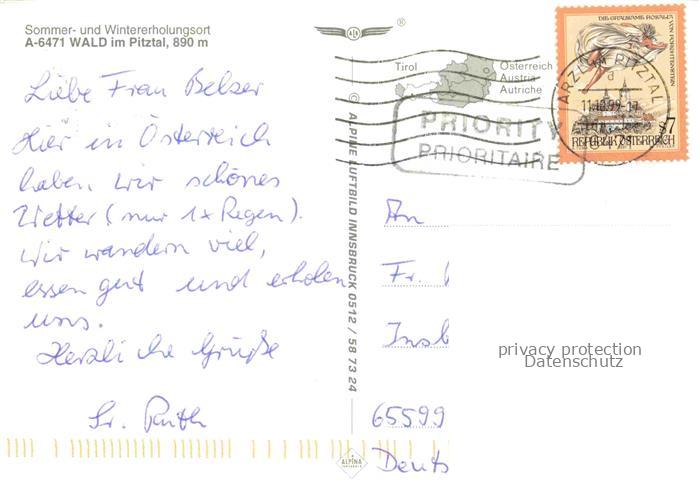 Sommer- und Wintererholungsort
A-6471 WALD im Pitztal, 890 m
Liebe Frau Belzer
Hier in Österreich
haben wir schönes
Wetter (nur 1x Regen).
Wir wandern viel,
essen gut und erholen
uns.
Herzliche Grüße
Sr. Ruth
®
Tirol
Österreich
Austria
Autriche
© ALPINE LUFTBILD INNSBRUCK 0512 / 58 73 24
PRIORITY
PRIORITAIRE
DIE GRAUSAME ROSALIA VON FORCHTENSTEIN
7
REPUBLIK ÖSTERREICH
ARZL IM PITZTAL
a
11.10.99-17
6471
An
Fr.
Insb
65599
Deuts
privacy protection
Datenschutz
ALPINA